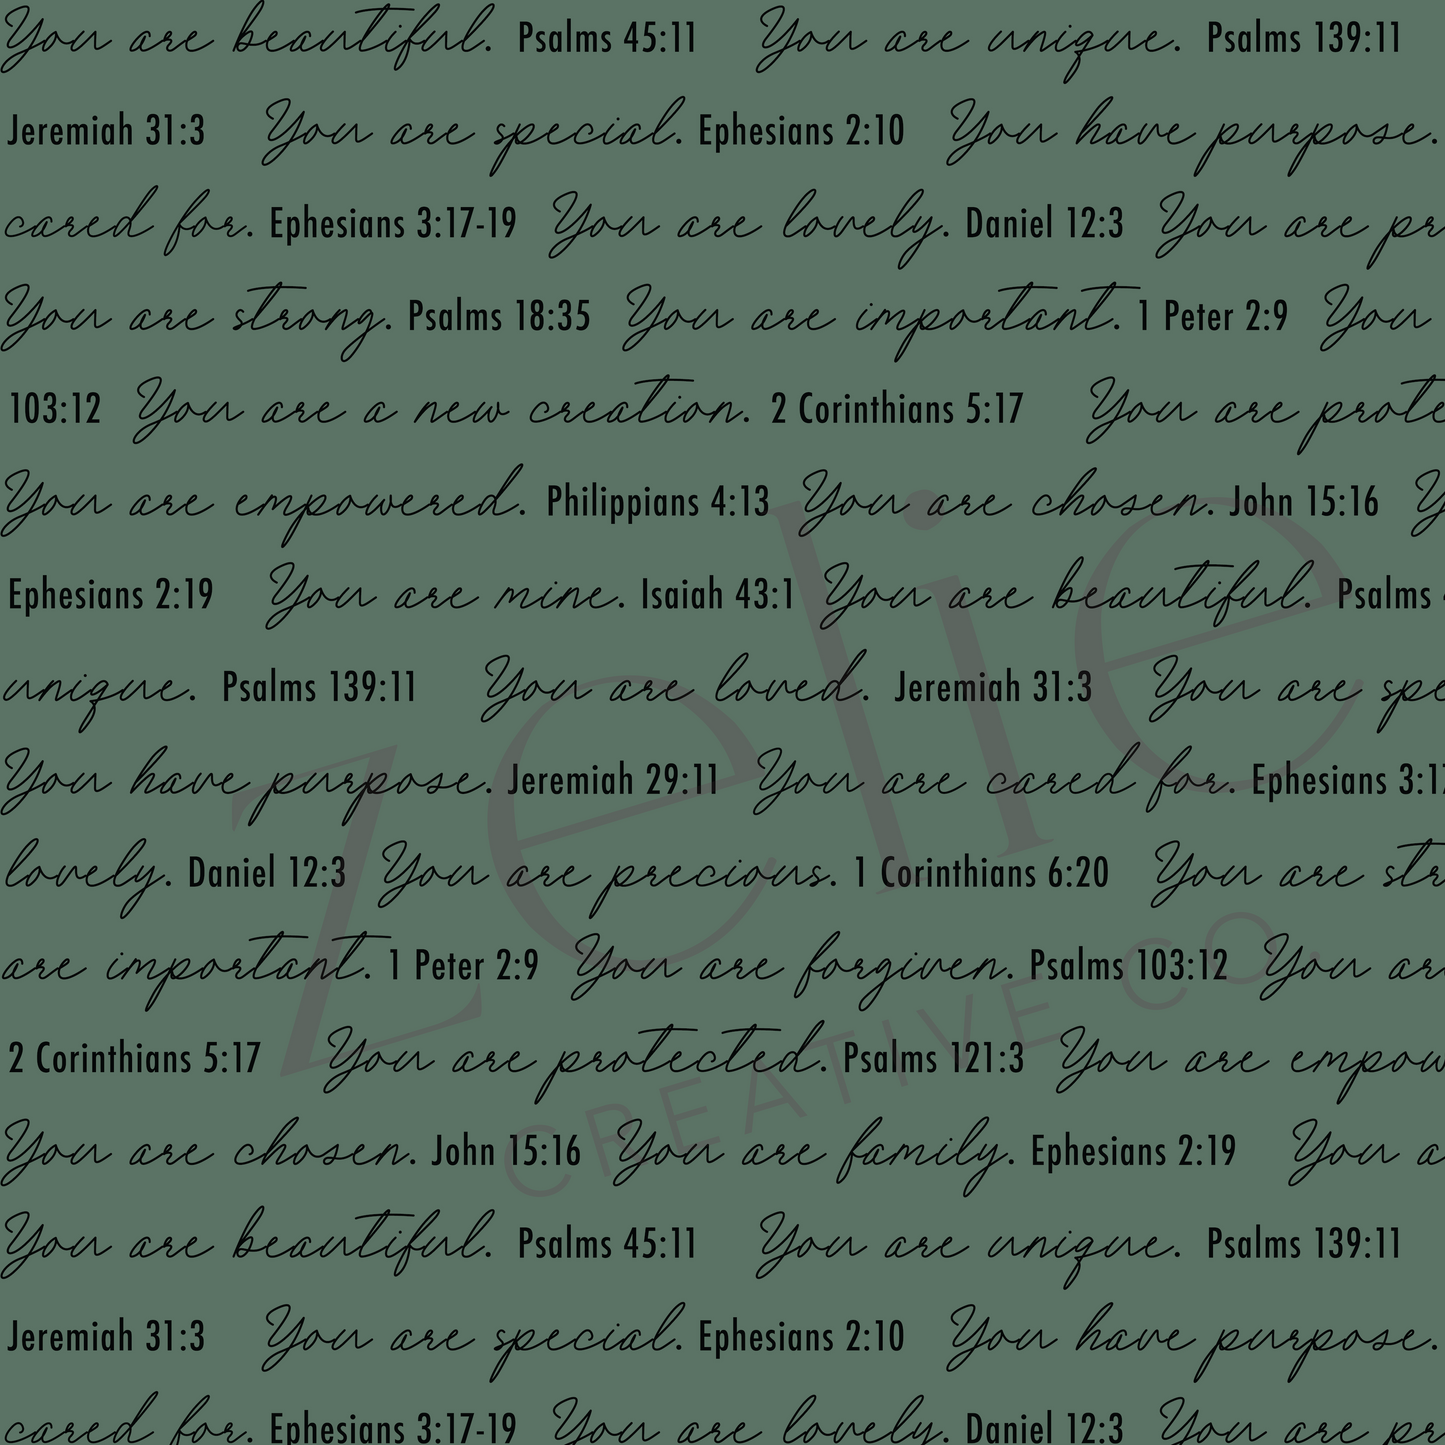 You are beautiful. Psalms 45:11 You are unique. Psalms 139:11
Jeremiah 31:3 You are special. Ephesians 2:10 You have purpose.
cared for. Ephesians 3:17-19 You are lovely. Daniel 12:3 You are pr
You are strong. Psalms 18:35 You are important. 1 Peter 2:9 You
103:12 You are a new creation. 2 Corinthians 5:17 You are prote
You are empowered. Philippians 4:13 You are chosen. John 15:16 Y
Ephesians 2:19 You are mine. Isaiah 43:1 You are beautiful. Psalms
unique. Psalms 139:11 You are loved. Jeremiah 31:3 You are spe
You have purpose. Jeremiah 29:11 You are cared for. Ephesians 3:17
lovely. Daniel 12:3 You are precious. 1 Corinthians 6:20 You are str
are important. 1 Peter 2:9 You are forgiven. Psalms 103:12 You ar
2 Corinthians 5:17 You are protected. Psalms 121:3 You are empow
You are chosen. John 15:16 You are family. Ephesians 2:19 You a
You are beautiful. Psalms 45:11 You are unique. Psalms 139:11
Jeremiah 31:3 You are special. Ephesians 2:10 You have purpose.
cared for. Ephesians 3:17-19 You are lovely. Daniel 12:3 You are pr
zelie
CREATIVE CO.